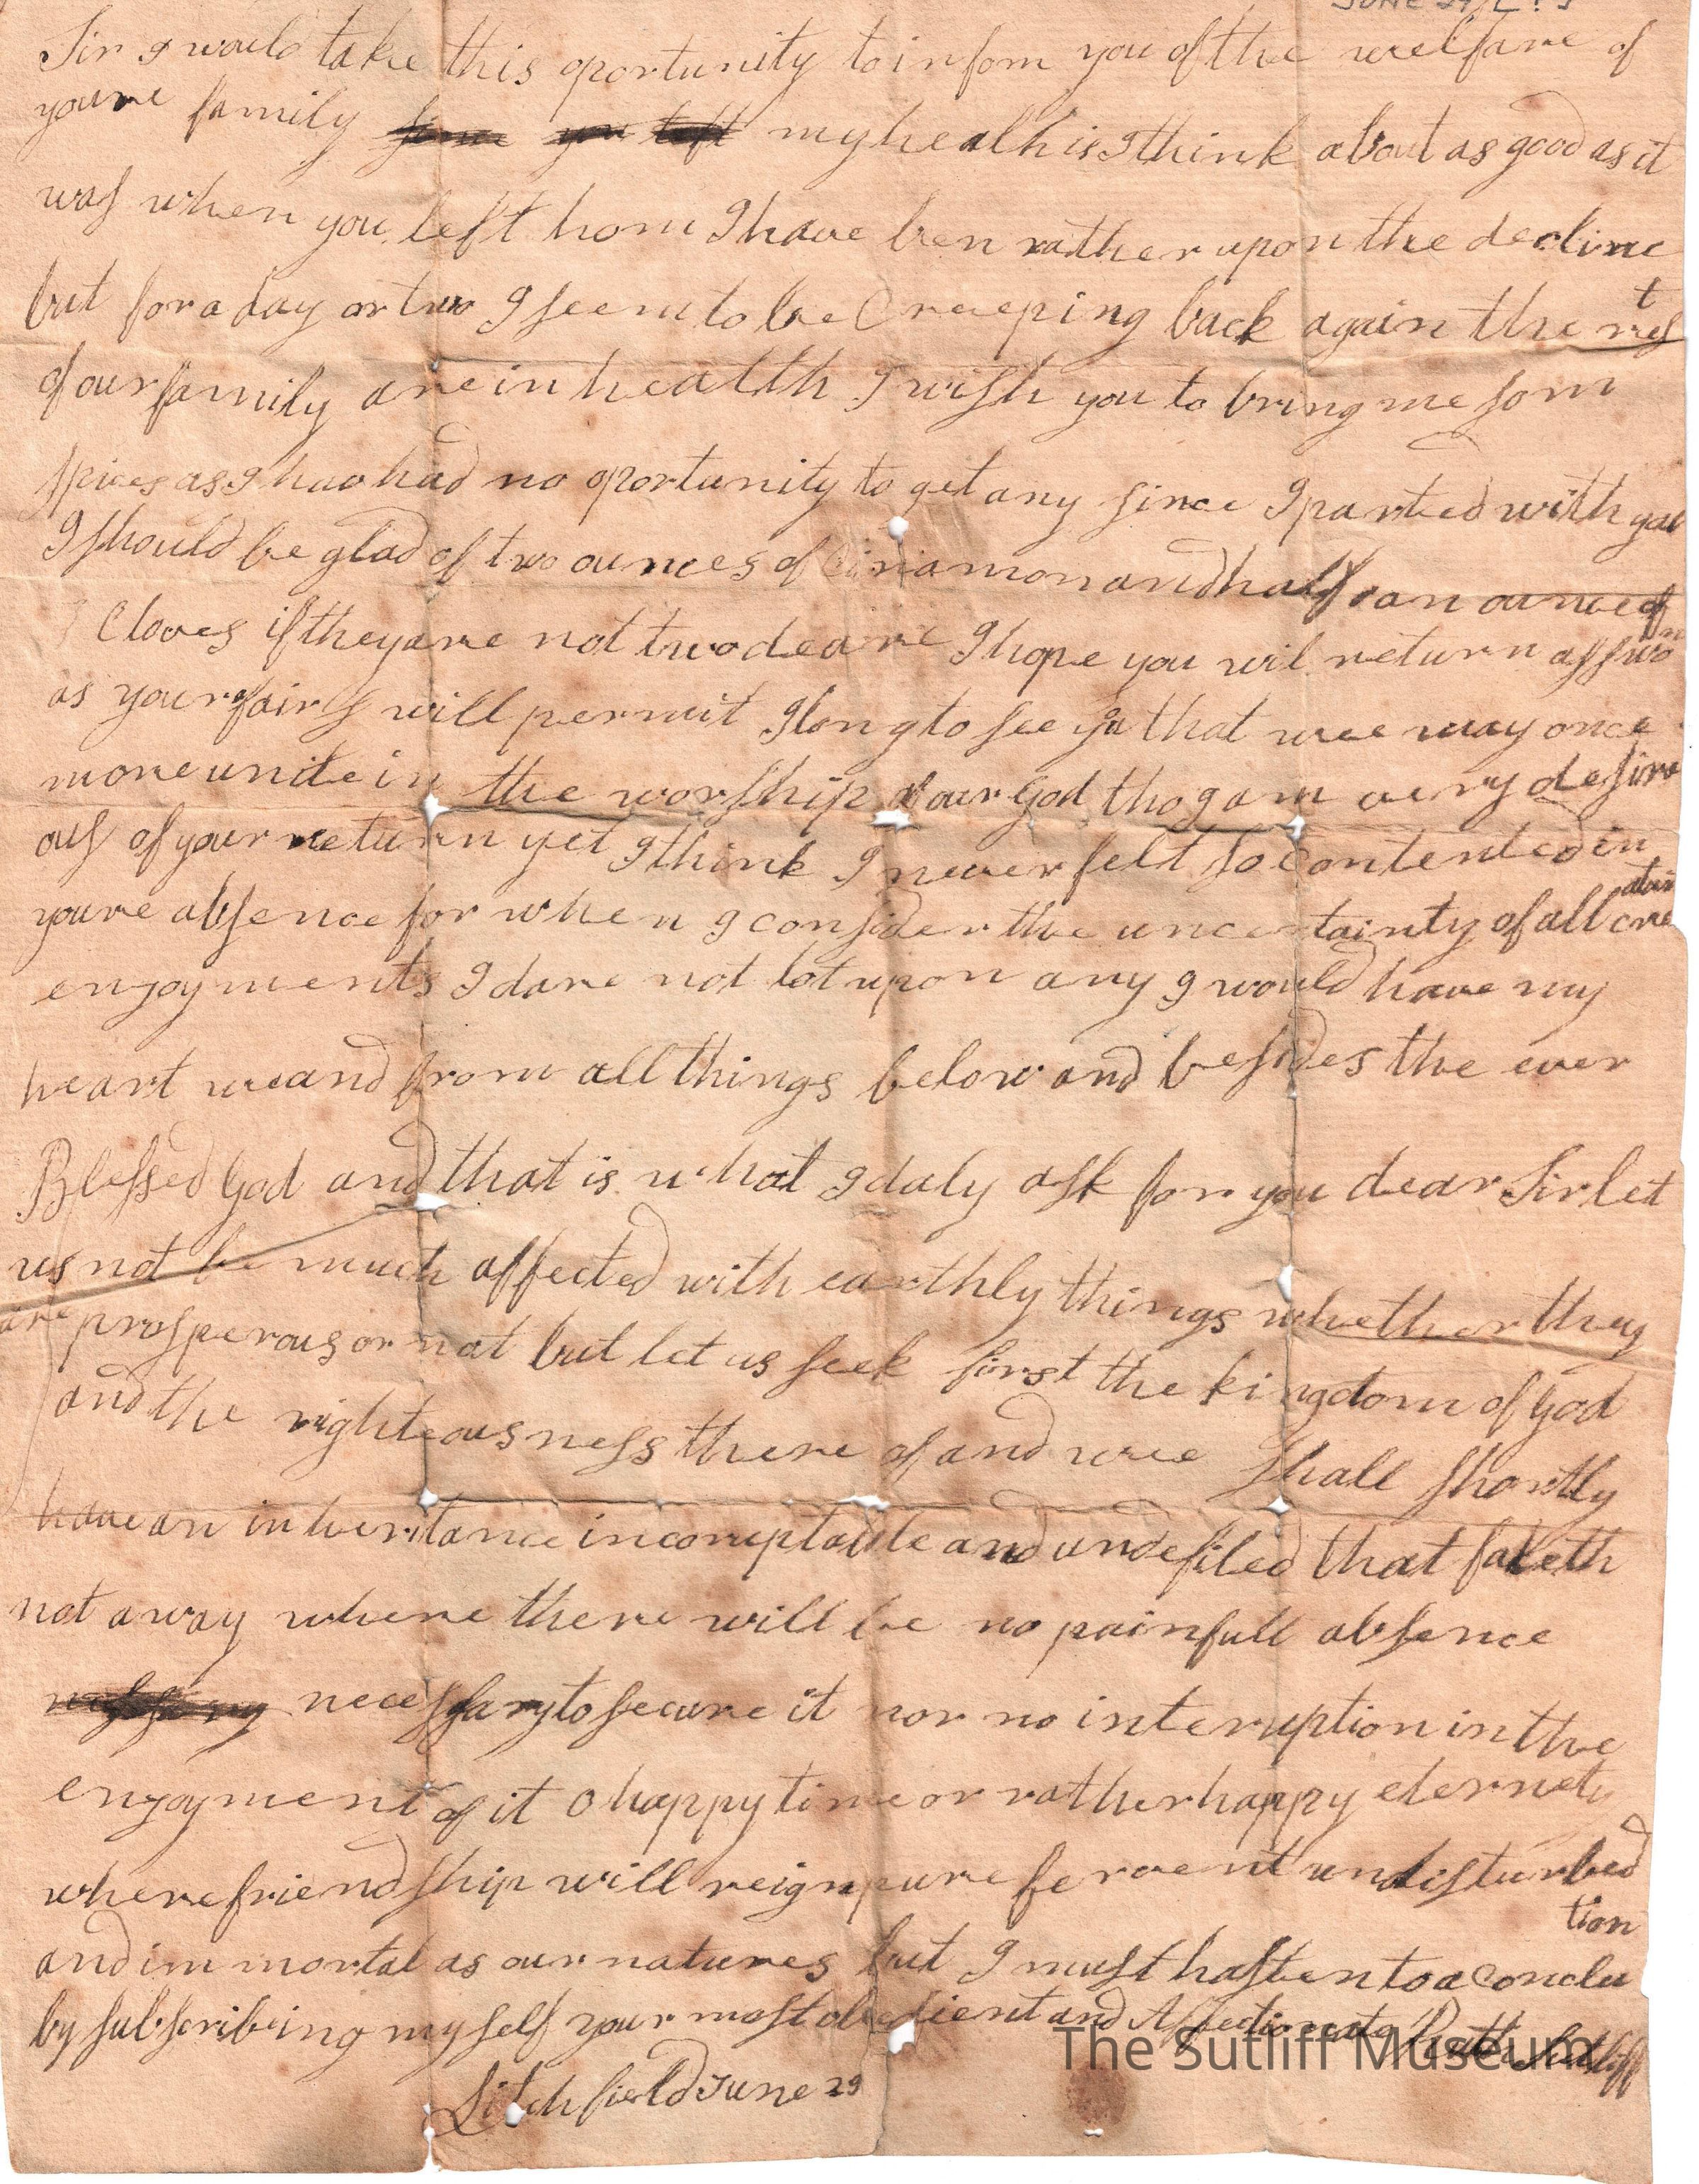 JUNE 29
Sir I would take this oportunity to inform you of the welfare of
youre family my health is I think about as good as it
was when you left hom I have ben rather upon the decline
but for a day or two I seem to be Creeping back again the rest
of our family are in health I wish you to bring me som
spices as I hav had no oportunity to get any since I parted with you
I should be glad of two ounces of Cinamon and half an ounce of
Cloves if they are not two deare I hope you wil return as swon
as your afairs will permit I long to see you that wee may once
more unite in the worship of our God tho I am very desire
ous of your return yet I think I never felt so contented in
youre absence for when I consider the uncertainty of all creatur
enjoyments I dare not lot upon any I would have my
heart weand from all things below and besides the ever
Blessed God and that is what I daly ask for you dear Sir let
us not be much affected with earthly things whether they
are prosperous or not but let us seek first the kingdom of God
and the righteousness there of and wee shall shortly
have an inheritance incorruptable and undefiled that fadeth
not away where there will be no painfull absence
necessary to secure it nor no interuption in the
enjoyment of it O happy time or rather happy eternety
where friendship will reign pure fervent undisturbed
and immortal as our natures but I must hasten to a conclution
by subscribing myself your most obedient and Affectionate Ruth Sutliff
Litchfield June 29
The Sutliff Museum